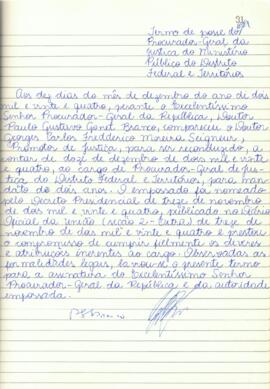 Termo de posse do
Procurador-Geral da
Justiça do Ministério
Público do Distrito
Federal e Territórios
Aos dez dias do mês de dezembro do ano de dois
mil e vinte e quatro, perante o Excelentíssimo
Senhor Procurador-Geral da República, Doutor
Paulo Gustavo Gonet Branco, compareceu o Doutor
Georges Carlos Fredderico Moreira Seigneur,
Promotor de Justiça, para ser reconduzido, a
contar de doze de dezembro de dois mil e vinte
e quatro, ao cargo de Procurador-Geral de Jus-
tiça do Distrito Federal e Territórios, para man-
dato de dois anos. O empossado foi nomeado
pelo Decreto Presidencial de treze de novembro
de dois mil e vinte e quatro, publicado no Diário
Oficial da União (seção 2 - Extra) de treze de
novembro de dois mil e vinte e quatro e prestou
o compromisso de cumprir fielmente os deveres
e atribuições inerentes ao cargo. Observadas as
formalidades legais, lavrou-se o presente termo
para a assinatura do Excelentíssimo Senhor
Procurador-Geral da República e da autoridade
empossada.